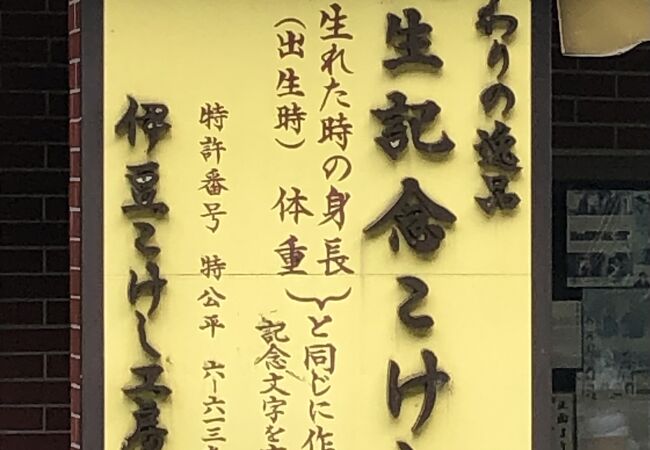 わりの逸品
生記念こけし
生れた時の身長
（出生時） 体重
と同じに作
記念文字を
特許番号 特公平 六－六一三
伊豆こけし工房